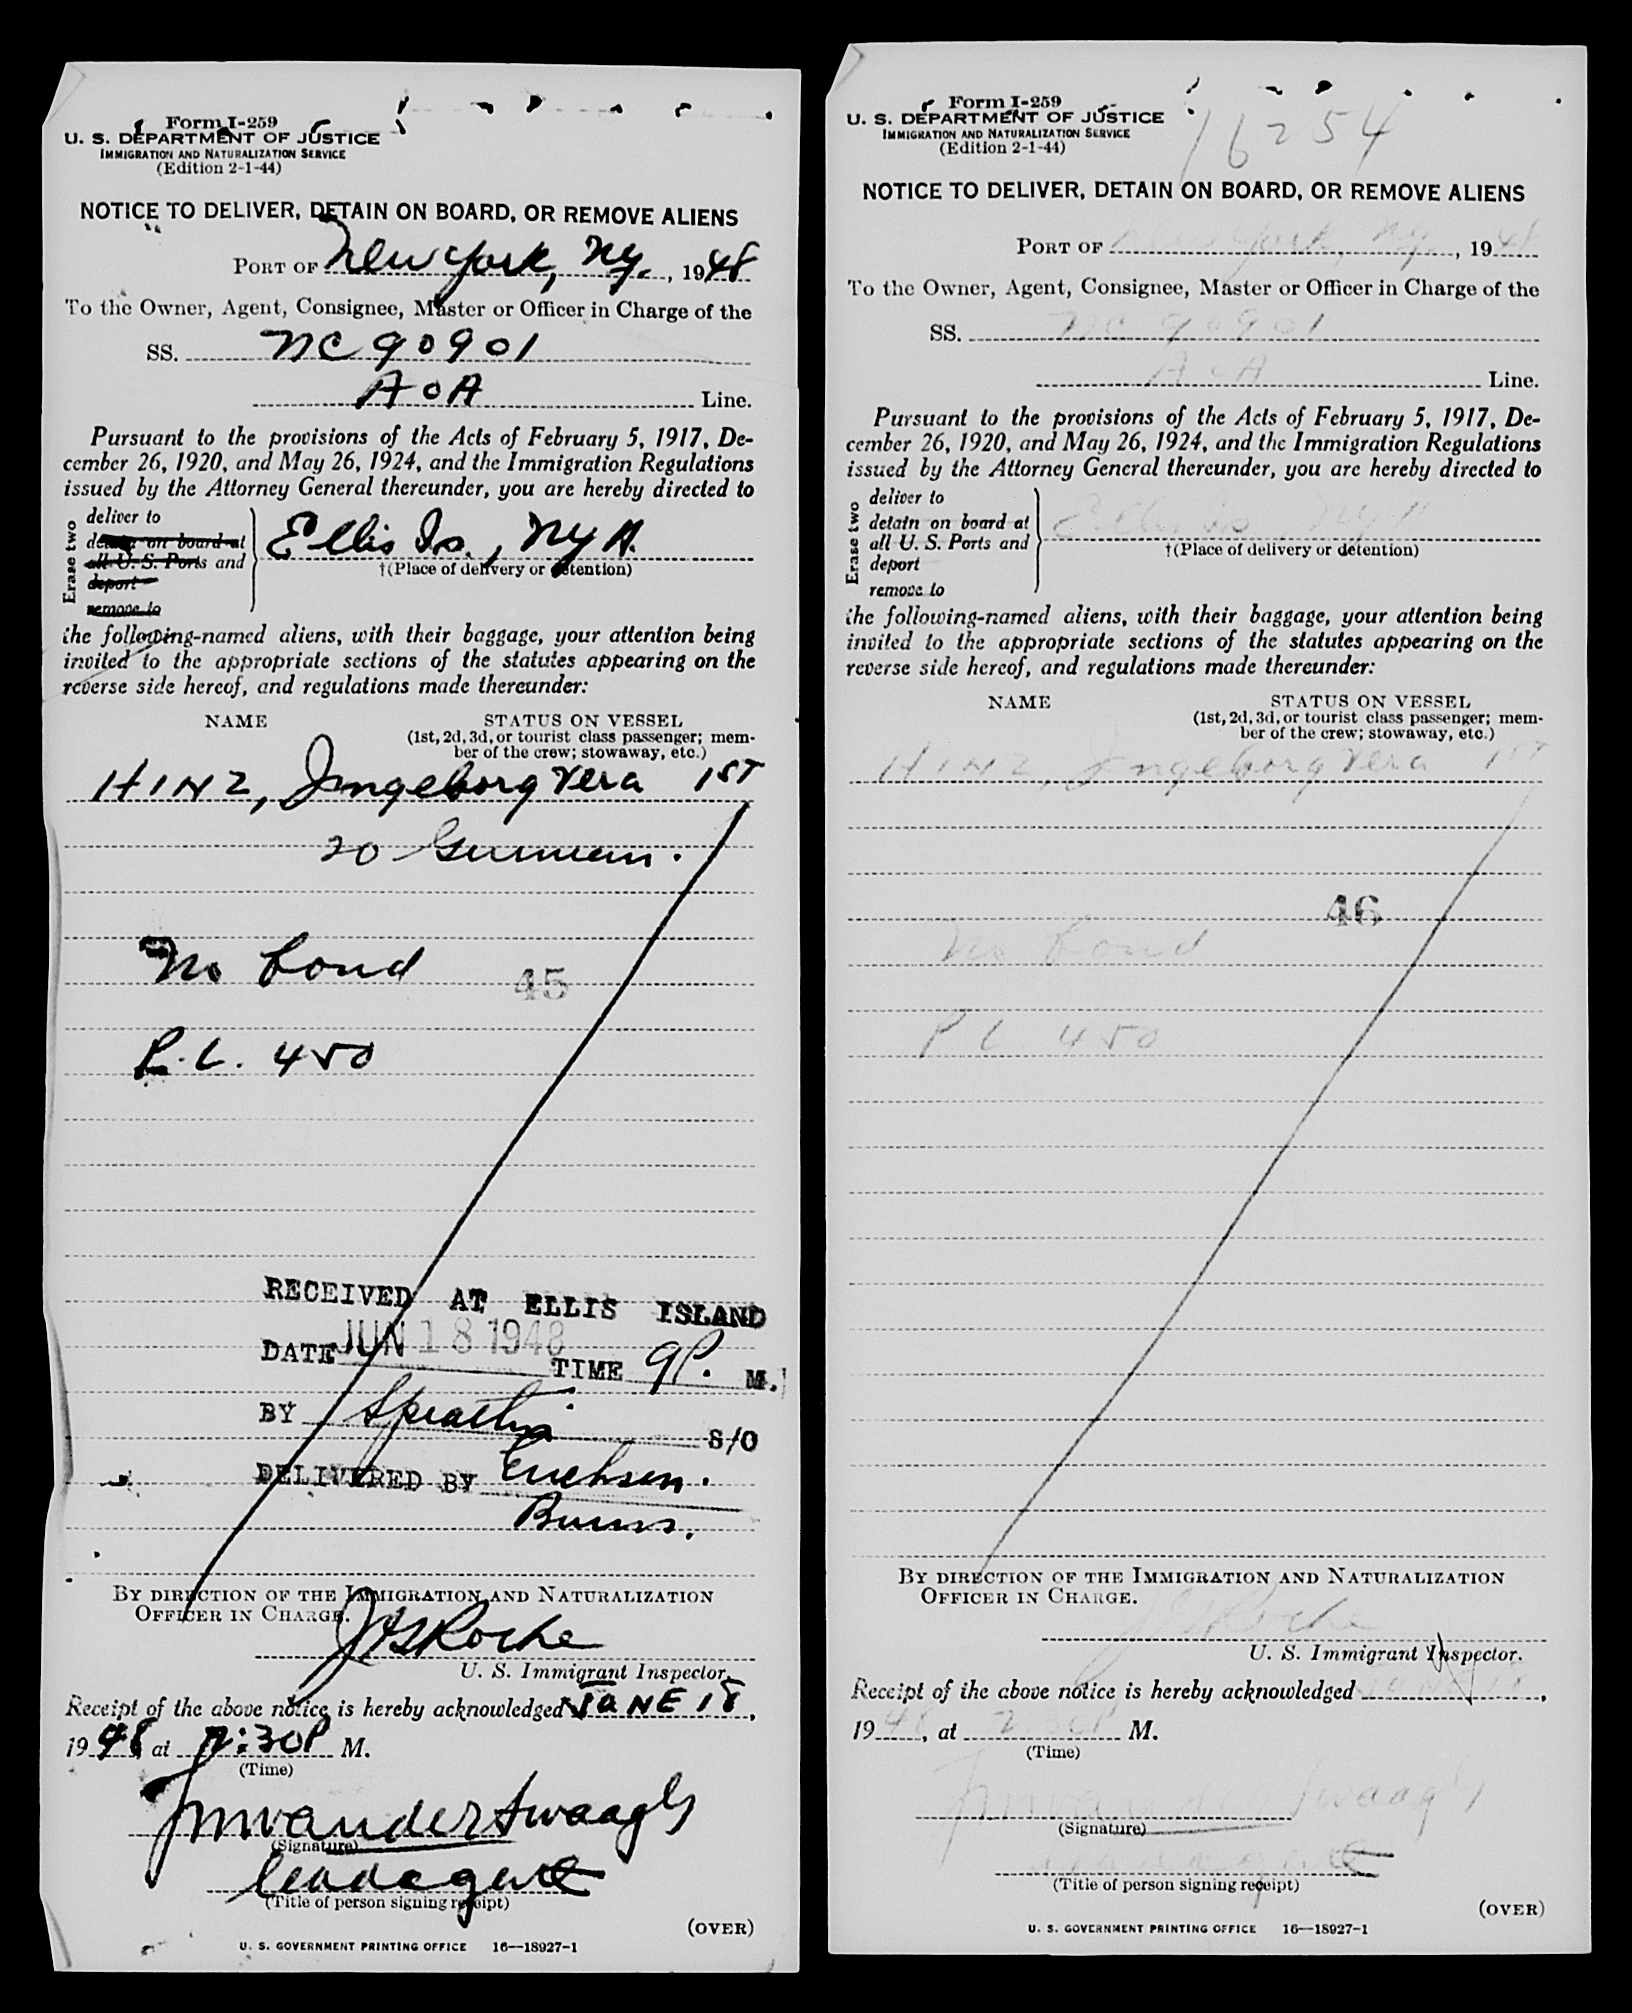 Form I-259
U. S. DEPARTMENT OF JUSTICE
IMMIGRATION AND NATURALIZATION SERVICE
(Edition 2-1-44)
NOTICE TO DELIVER, DETAIN ON BOARD, OR REMOVE ALIENS
PORT OF New York, Ny., 1948
To the Owner, Agent, Consignee, Master or Officer in Charge of the
SS. NC 90901
AOA Line.
Pursuant to the provisions of the Acts of February 5, 1917, De-
cember 26, 1920, and May 26, 1924, and the Immigration Regulations
issued by the Attorney General thereunder, you are hereby directed to
Erase two
deliver to
detain on board at
all U. S. Ports and
deport
remove to
Ellis Is., NyH.
†(Place of delivery or detention)
the following-named aliens, with their baggage, your attention being
invited to the appropriate sections of the statutes appearing on the
reverse side hereof, and regulations made thereunder:
NAME STATUS ON VESSEL
(1st, 2d, 3d, or tourist class passenger; mem-
ber of the crew; stowaway, etc.)
HINZ, Ingeborg Vera 1ST
20 German.
No bond
45
P.L. 450
RECEIVED AT ELLIS ISLAND
DATE JUN 18 1948 TIME 9P. M.
BY S/O
DELIVERED BY Erichsen.
Burns.
BY DIRECTION OF THE IMMIGRATION AND NATURALIZATION
OFFICER IN CHARGE.
Roche
U. S. Immigrant Inspector.
Receipt of the above notice is hereby acknowledged JUNE 18,
1948, at 2:30P M.
(Time)
(Signature)
(Title of person signing receipt)
(OVER)
U. S. GOVERNMENT PRINTING OFFICE 16—18927-1
Form I-259
U. S. DEPARTMENT OF JUSTICE
IMMIGRATION AND NATURALIZATION SERVICE
(Edition 2-1-44)
16254
NOTICE TO DELIVER, DETAIN ON BOARD, OR REMOVE ALIENS
PORT OF New York, Ny., 1948
To the Owner, Agent, Consignee, Master or Officer in Charge of the
SS. NC 90901
AOA Line.
Pursuant to the provisions of the Acts of February 5, 1917, De-
cember 26, 1920, and May 26, 1924, and the Immigration Regulations
issued by the Attorney General thereunder, you are hereby directed to
Erase two
deliver to
detain on board at
all U. S. Ports and
deport
remove to
Ellis Is., NyH
†(Place of delivery or detention)
the following-named aliens, with their baggage, your attention being
invited to the appropriate sections of the statutes appearing on the
reverse side hereof, and regulations made thereunder:
NAME STATUS ON VESSEL
(1st, 2d, 3d, or tourist class passenger; mem-
ber of the crew; stowaway, etc.)
HINZ, Ingeborg Vera 1ST
46
No bond
P L 450
BY DIRECTION OF THE IMMIGRATION AND NATURALIZATION
OFFICER IN CHARGE.
Roche
U. S. Immigrant Inspector.
Receipt of the above notice is hereby acknowledged JUNE 18,
1948, at 2:30P M.
(Time)
(Signature)
(Title of person signing receipt)
(OVER)
U. S. GOVERNMENT PRINTING OFFICE 16—18927-1